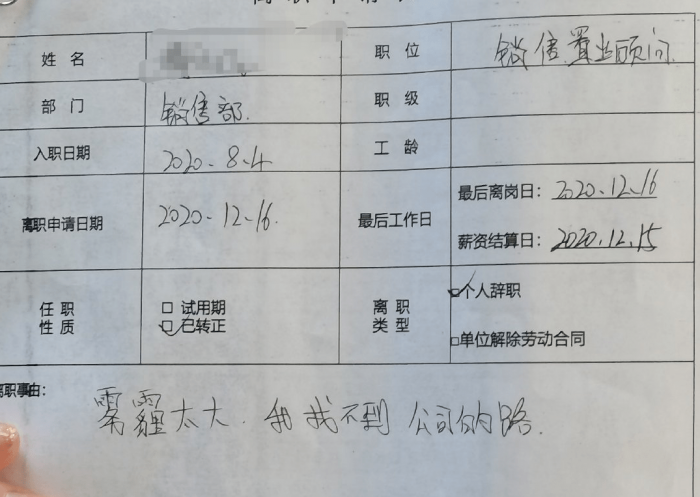 离职申请
姓名 职位 销售置业顾问
部门 销售部 职级
入职日期 2020.8.4 工龄
离职申请日期 2020.12.16. 最后工作日 最后离岗日：2020.12.16
薪资结算日：2020.12.15
任职性质 □ 试用期 离职类型 □个人辞职
□ 已转正 □单位解除劳动合同
离职事由：
雾霾太大.我找不到公司的路.